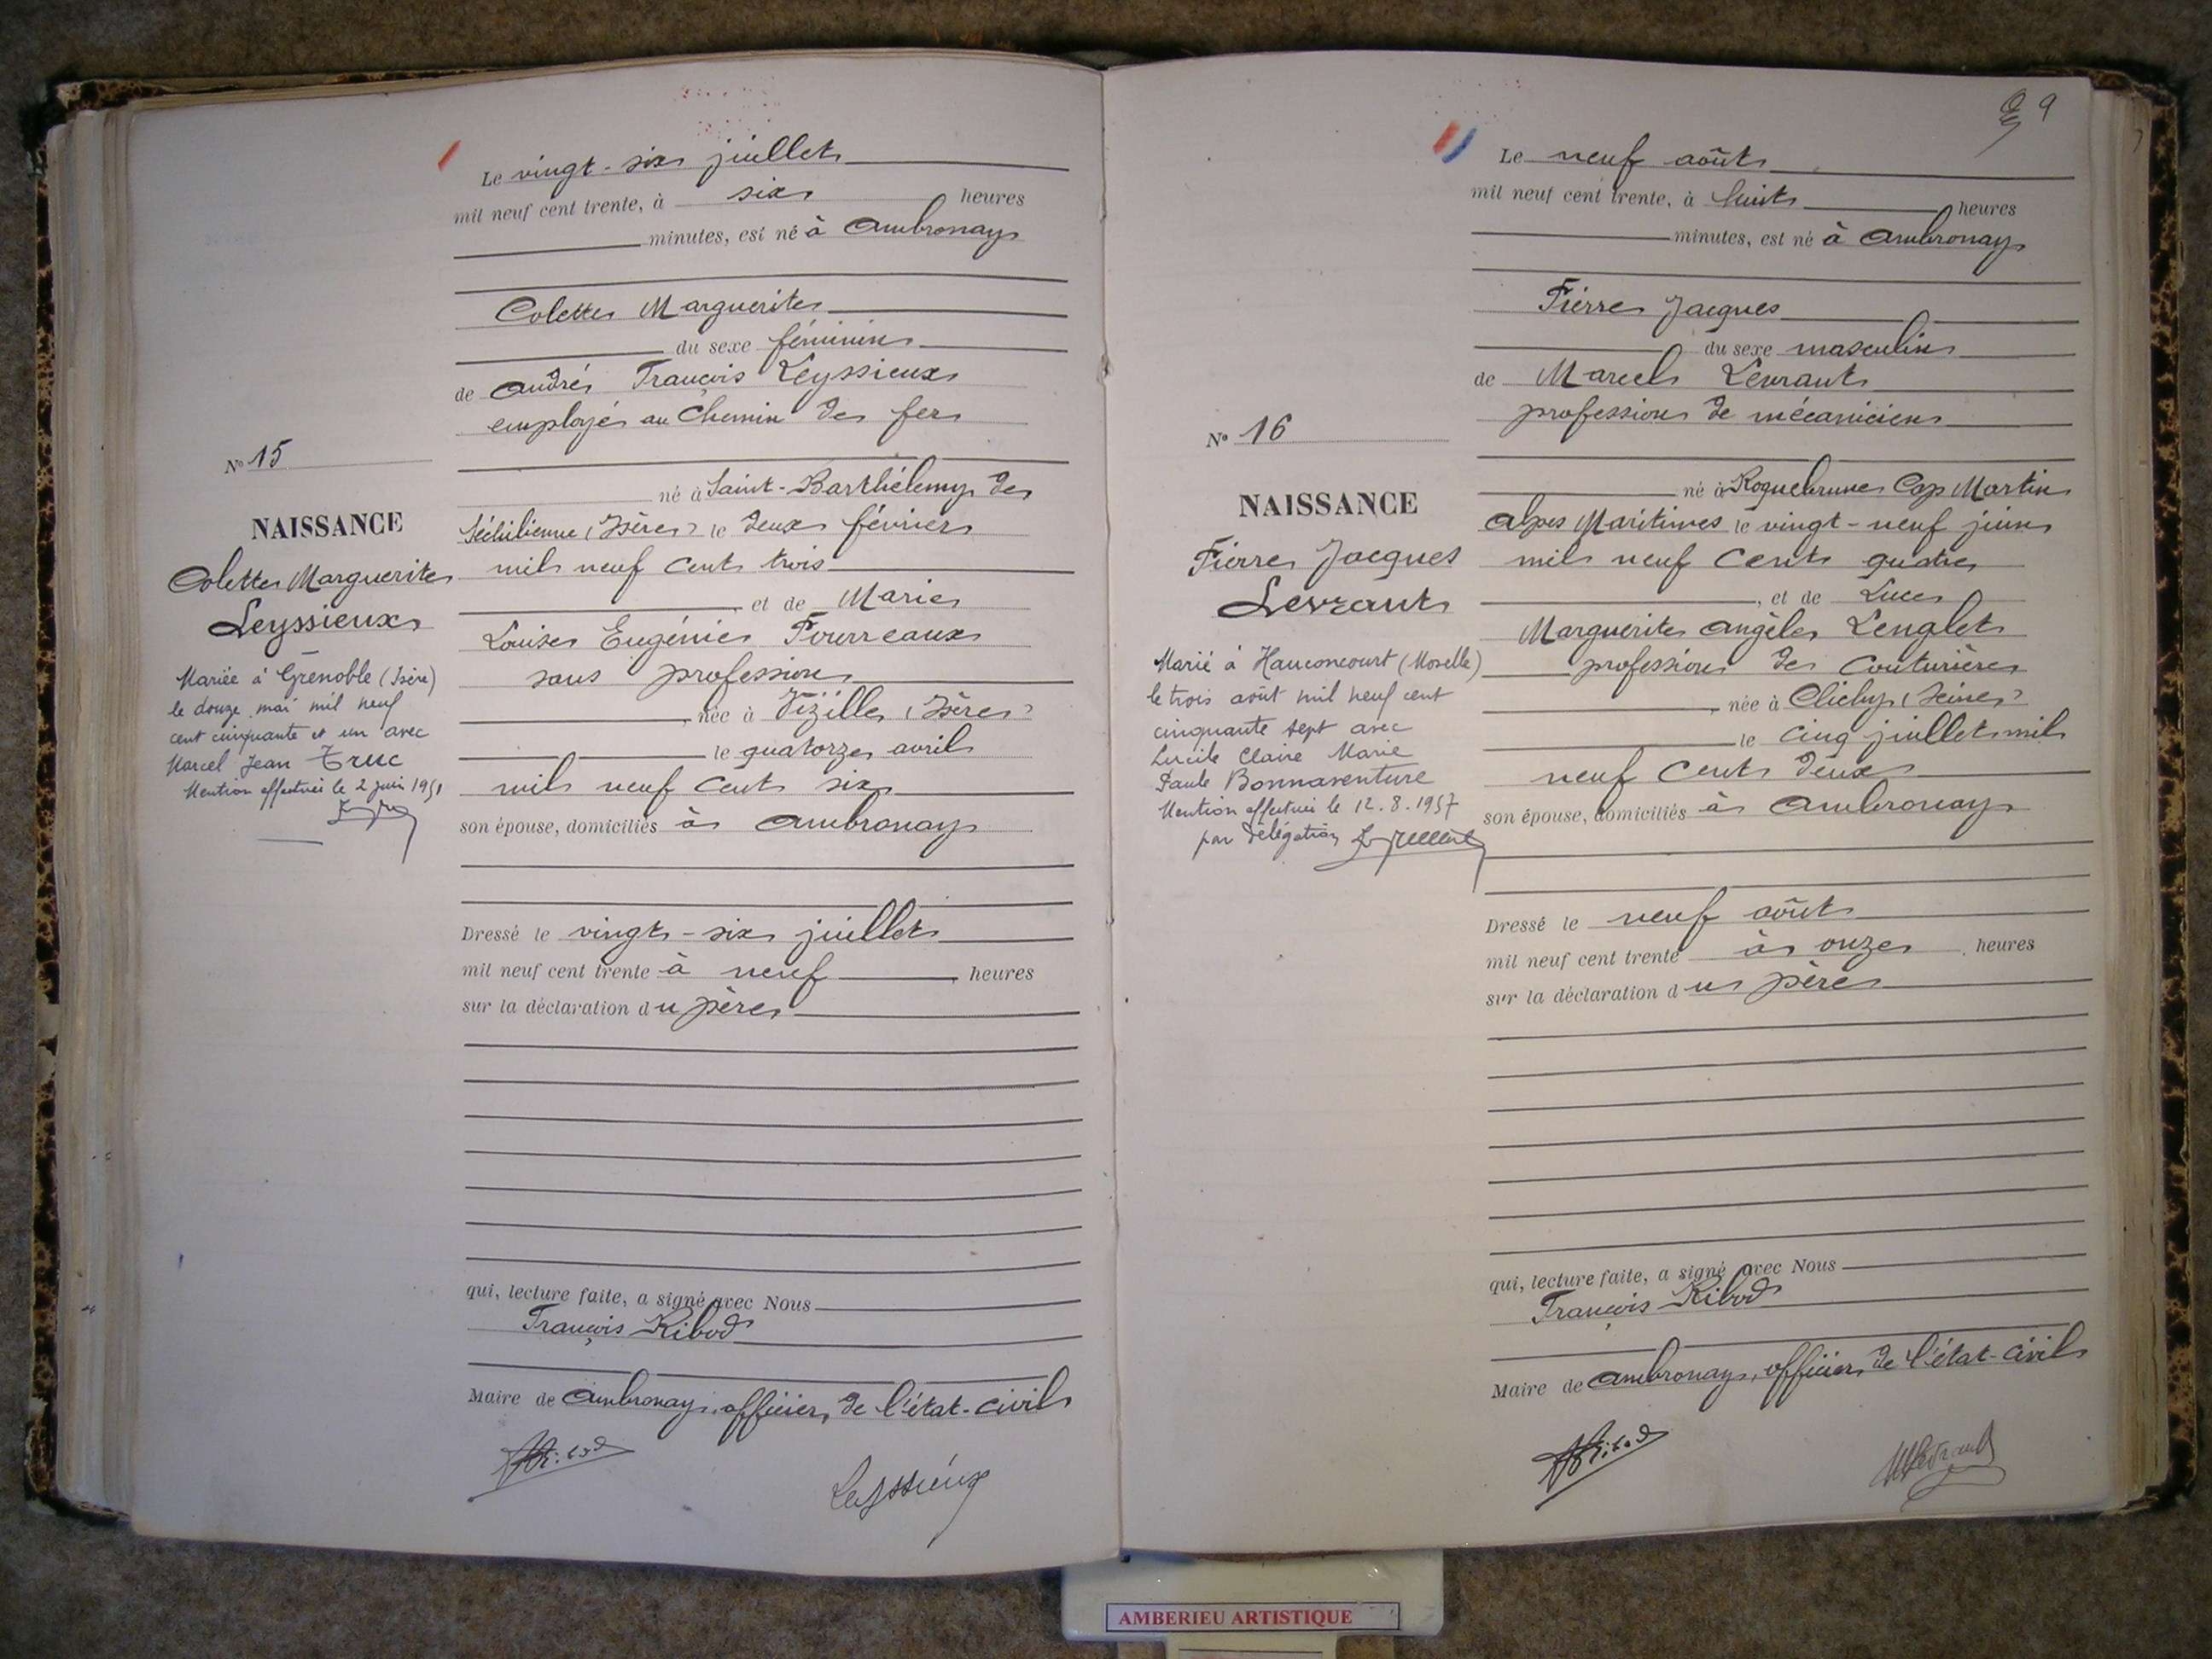 Le vingt-six juillet
mil neuf cent trente, à six heures
minutes, est né à Ambronay
Colette Marguerite
du sexe féminin
de André François Leyssieux
employé au Chemin de fer
né à Saint-Barthélemy de
Séchilienne (Isère) le deux février
mil neuf cent trois
et de Marie
Louise Eugénie Fourreaux
sans profession
née à Vizille (Isère)
le quatorze avril
mil neuf cent six
son épouse, domiciliés à Ambronay
Dressé le vingt-six juillet
mil neuf cent trente à neuf heures
sur la déclaration du père
qui, lecture faite, a signé avec Nous
François Ribod
Maire de Ambronay, officier de l'état-civil
Leyssieux
N° 15
NAISSANCE
Colette Marguerite
Leyssieux
Mariée à Grenoble (Isère)
le douze mai mil neuf
cent cinquante et un avec
Marcel Jean Truc
Mention effectuée le 2 juin 1951
9
Le neuf août
mil neuf cent trente, à huit heures
minutes, est né à Ambronay
Pierre Jacques
du sexe masculin
de Marcel Levrant
profession de mécanicien
né à Roquebrune Cap Martin
Alpes Maritimes le vingt-neuf juin
mil neuf cent quatre
, et de Luce
Marguerite Angèle Lenglet
profession de couturière
, née à Clichy (Seine)
le cinq juillet mil
neuf cent deux
son épouse, domiciliés à Ambronay
Dressé le neuf août
mil neuf cent trente à onze heures
sur la déclaration du père
qui, lecture faite, a signé avec Nous
François Ribod
Maire de Ambronay, officier de l'état-civil
N° 16
NAISSANCE
Pierre Jacques
Levrant
Marié à Hauconcourt (Moselle)
le trois août mil neuf cent
cinquante sept avec
Lucile Claire Marie
Paule Bonnaventure
Mention effectuée le 12.8.1957
par délégation
AMBERIEU ARTISTIQUE